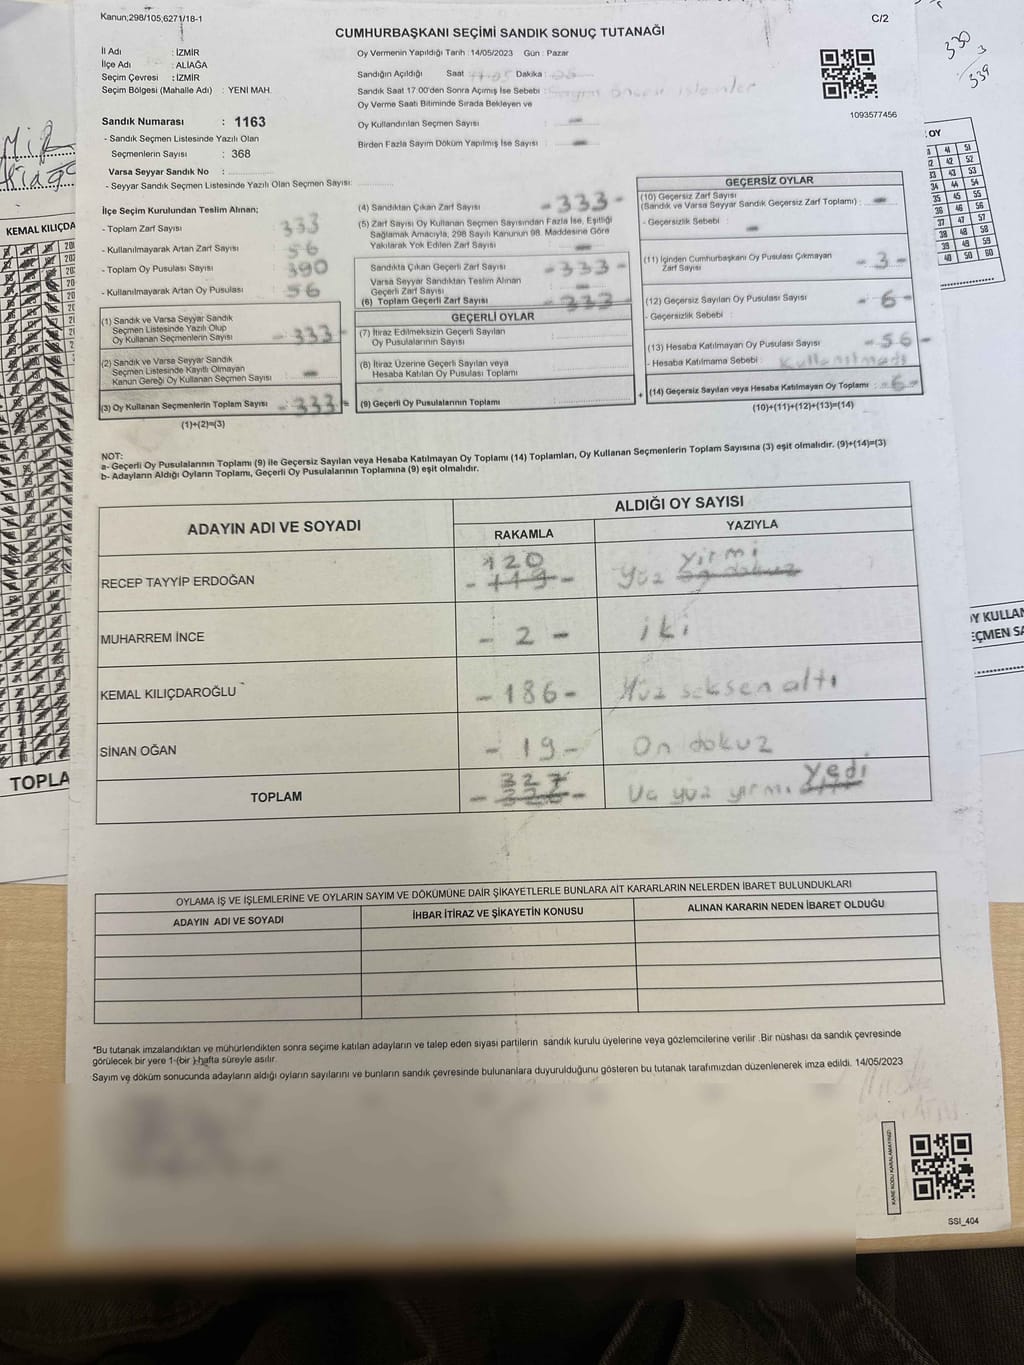 Kanun;298/105,6271/18-1
C/2
CUMHURBAŞKANI SEÇİMİ SANDIK SONUÇ TUTANAĞI
İl Adı : İZMİR
İlçe Adı : ALİAĞA
Seçim Çevresi : İZMİR
Seçim Bölgesi (Mahalle Adı) : YENİ MAH.
Oy Vermenin Yapıldığı Tarih : 14/05/2023 Gün : Pazar
Sandığın Açıldığı Saat Dakika :
Sandık Saat 17:00'den Sonra Açımış İse Sebebi :
Oy Verme Saati Bitiminde Sırada Bekleyen ve
Oy Kullandırılan Seçmen Sayısı : -
Birden Fazla Sayım Döküm Yapılmış İse Sayısı : -
1093577456
330
3
339
Sandık Numarası : 1163
- Sandık Seçmen Listesinde Yazılı Olan
Seçmenlerin Sayısı : 368
Varsa Seyyar Sandık No :
- Seyyar Sandık Seçmen Listesinde Yazılı Olan Seçmen Sayısı:
İlçe Seçim Kurulundan Teslim Alınan;
- Toplam Zarf Sayısı : 333
- Kullanılmayarak Artan Zarf Sayısı : 56
- Toplam Oy Pusulası Sayısı : 390
- Kullanılmayarak Artan Oy Pusulası : 56
(1) Sandık ve Varsa Seyyar Sandık
Seçmen Listesinde Yazılı Olup
Oy Kullanan Seçmenlerin Sayısı : - 333 -
(2) Sandık ve Varsa Seyyar Sandık
Seçmen Listesinde Kayıtlı Olmayan
Kanun Gereği Oy Kullanan Seçmen Sayısı : -
(3) Oy Kullanan Seçmenlerin Toplam Sayısı : - 333 -
(1)+(2)=(3)
=
(4) Sandıktan Çıkan Zarf Sayısı : - 333 -
(5) Zarf Sayısı Oy Kullanan Seçmen Sayısından Fazla İse, Eşitliği
Sağlamak Amacıyla, 298 Sayılı Kanunun 98. Maddesine Göre
Yakılarak Yok Edilen Zarf Sayısı : -
Sandıkta Çıkan Geçerli Zarf Sayısı : - 333 -
Varsa Seyyar Sandıktan Teslim Alınan
Geçerli Zarf Sayısı : -
(6) Toplam Geçerli Zarf Sayısı : - 333 -
GEÇERLİ OYLAR
(7) İtiraz Edilmeksizin Geçerli Sayılan
Oy Pusulalarının Sayısı :
(8) İtiraz Üzerine Geçerli Sayılan veya
Hesaba Katılan Oy Pusulası Toplamı :
(9) Geçerli Oy Pusulalarının Toplamı :
+
GEÇERSİZ OYLAR
(10) Geçersiz Zarf Sayısı
(Sandık ve Varsa Seyyar Sandık Geçersiz Zarf Toplamı) : -
- Geçersizlik Sebebi : -
(11) İçinden Cumhurbaşkanı Oy Pusulası Çıkmayan
Zarf Sayısı : - 3 -
(12) Geçersiz Sayılan Oy Pusulası Sayısı : - 6 -
- Geçersizlik Sebebi :
(13) Hesaba Katılmayan Oy Pusulası Sayısı : - 56 -
- Hesaba Katılmama Sebebi : Kullanılmadı
(14) Geçersiz Sayılan veya Hesaba Katılmayan Oy Toplamı : - 6 -
(10)+(11)+(12)+(13)=(14)
NOT:
a- Geçerli Oy Pusulalarının Toplamı (9) ile Geçersiz Sayılan veya Hesaba Katılmayan Oy Toplamı (14) Toplamları, Oy Kullanan Seçmenlerin Toplam Sayısına (3) eşit olmalıdır. (9)+(14)=(3)
b- Adayların Aldığı Oyların Toplamı, Geçerli Oy Pusulalarının Toplamına (9) eşit olmalıdır.
ADAYIN ADI VE SOYADI
ALDIĞI OY SAYISI
RAKAMLA
YAZIYLA
120
yirmi
RECEP TAYYİP ERDOĞAN - 119 - Yüz on dokuz
MUHARREM İNCE - 2 - iki
KEMAL KILIÇDAROĞLU - 186 - Yüz seksen altı
SİNAN OĞAN - 19 - On dokuz
327
yedi
TOPLAM Üç yüz yirmi
OYLAMA İŞ VE İŞLEMLERİNE VE OYLARIN SAYIM VE DÖKÜMÜNE DAİR ŞİKAYETLERLE BUNLARA AİT KARARLARIN NELERDEN İBARET BULUNDUKLARI
ADAYIN ADI VE SOYADI
İHBAR İTİRAZ VE ŞİKAYETİN KONUSU
ALINAN KARARIN NEDEN İBARET OLDUĞU
*Bu tutanak imzalandıktan ve mühürlendikten sonra seçime katılan adayların ve talep eden siyasi partilerin sandık kurulu üyelerine veya gözlemcilerine verilir .Bir nüshası da sandık çevresinde
görülecek bir yere 1-(bir )-hafta süreyle asılır.
Sayım ve döküm sonucunda adayların aldığı oyların sayılarını ve bunların sandık çevresinde bulunanlara duyurulduğunu gösteren bu tutanak tarafımızdan düzenlenerek imza edildi. 14/05/2023
KARE KODU KARALAMAYINIZ!
SSI_404
KEMAL KILIÇDA
TOPLA
OY
41 51
42 52
43 53
34 44 54
35 45 55
36 46 56
37 47 57
38 48 58
39 49 59
40 50 60
OY KULLAN
EÇMEN SA